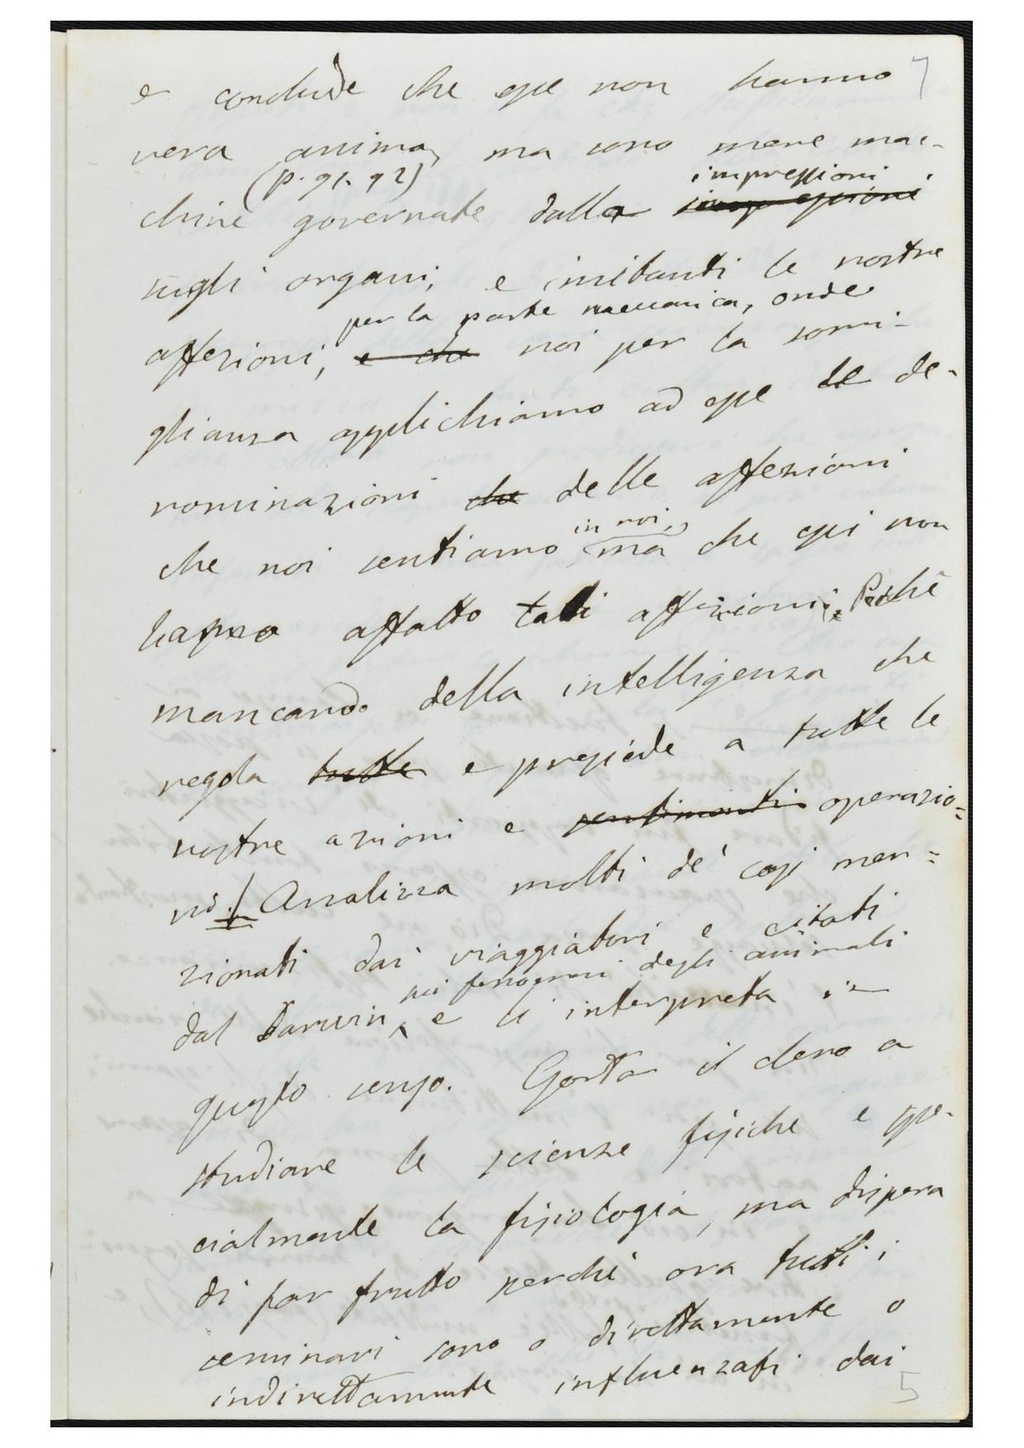 7
e conclude che esse non hanno
vera anima, ma sono mere mac-
(p. 91. 92) impressioni
chine governate dalla impressioni
sugli organi, e imitanti le nostre
per la parte meccanica, onde
affezioni, e che noi per la somi-
glianza applichiamo ad esse le de-
nominazioni che delle affezioni
in noi,
che noi sentiamo ma che essi non
hanno affatto tali affezioni. Perchè
mancando della intelligenza che
regola tutte e presiede a tutte le
nostre azioni e sentimenti operazio=
ni. Analizza molti de' casi men=
zionati dai viaggiatori e citati
nei fenomeni degli animali
dal Darwin, e li interpreta in
questo senso. Gorta il clero a
studiare le scienze fisiche e spe-
cialmente la fisiologia, ma dispera
di far frutto perchè ora tutti i
seminari sono o direttamente o
indirettamente influenzati dai
5